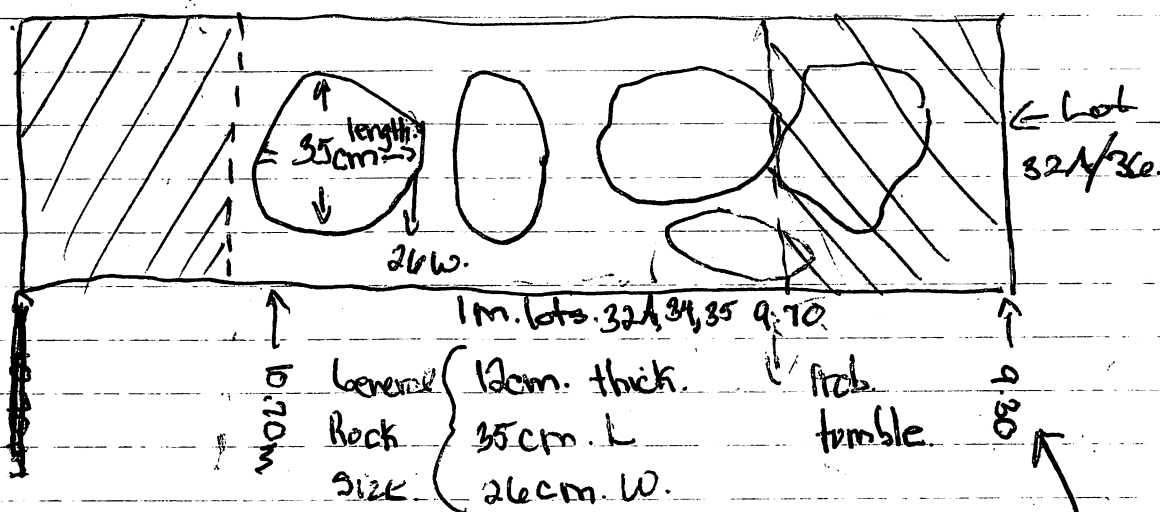 length
35cm
26W.
← Lot
32A/36.
1m. lots. 32A, 34, 35 9.70
10.70m
General Rock Size
12cm. thick.
35cm. L
26cm. W.
Prob. tumble.
9.30